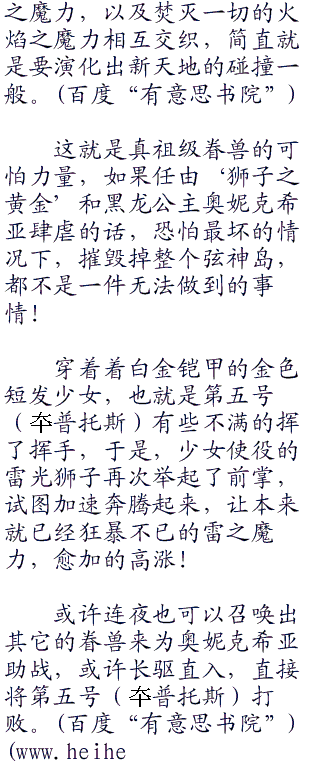 之魔力，以及焚灭一切的火
焰之魔力相互交织，简直就
是要演化出新天地的碰撞一
般。(百度“有意思书院”)
这就是真祖级眷兽的可
怕力量，如果任由‘狮子之
黄金’和黑龙公主奥妮克希
亚肆虐的话，恐怕最坏的情
况下，摧毁掉整个弦神岛，
都不是一件无法做到的事
情！
穿着着白金铠甲的金色
短发少女，也就是第五号
（夲普托斯）有些不满的挥
了挥手，于是，少女使役的
雷光狮子再次举起了前掌，
试图加速奔腾起来，让本来
就已经狂暴不已的雷之魔
力，愈加的高涨！
或许连夜也可以召唤出
其它的眷兽来为奥妮克希亚
助战，或许长驱直入，直接
将第五号（夲普托斯）打
败。(百度“有意思书院”)
(www.heihe